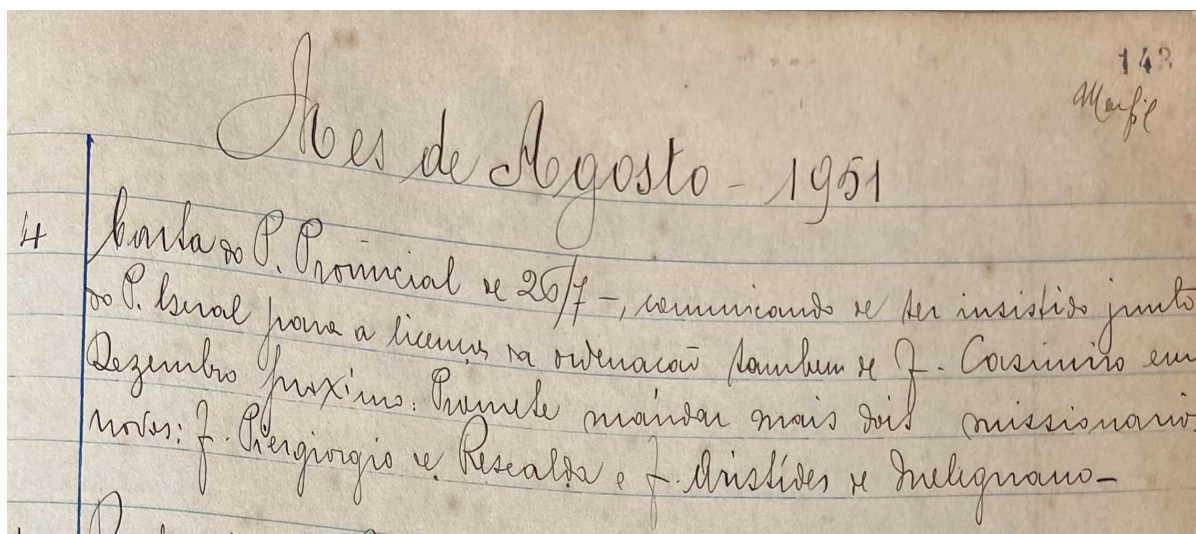 143
Mes de Agosto - 1951
4 Carta do P. Provincial de 26/7 -, comunicando de ter insistido junto
do P. Geral para a licença da ordenação tambem de f. Casimiro em
Dezembro proximo. Promete mandar mais dois missionarios
novos: f. Piergiorgio de Pescalda e f. Aristides de Melegnano -